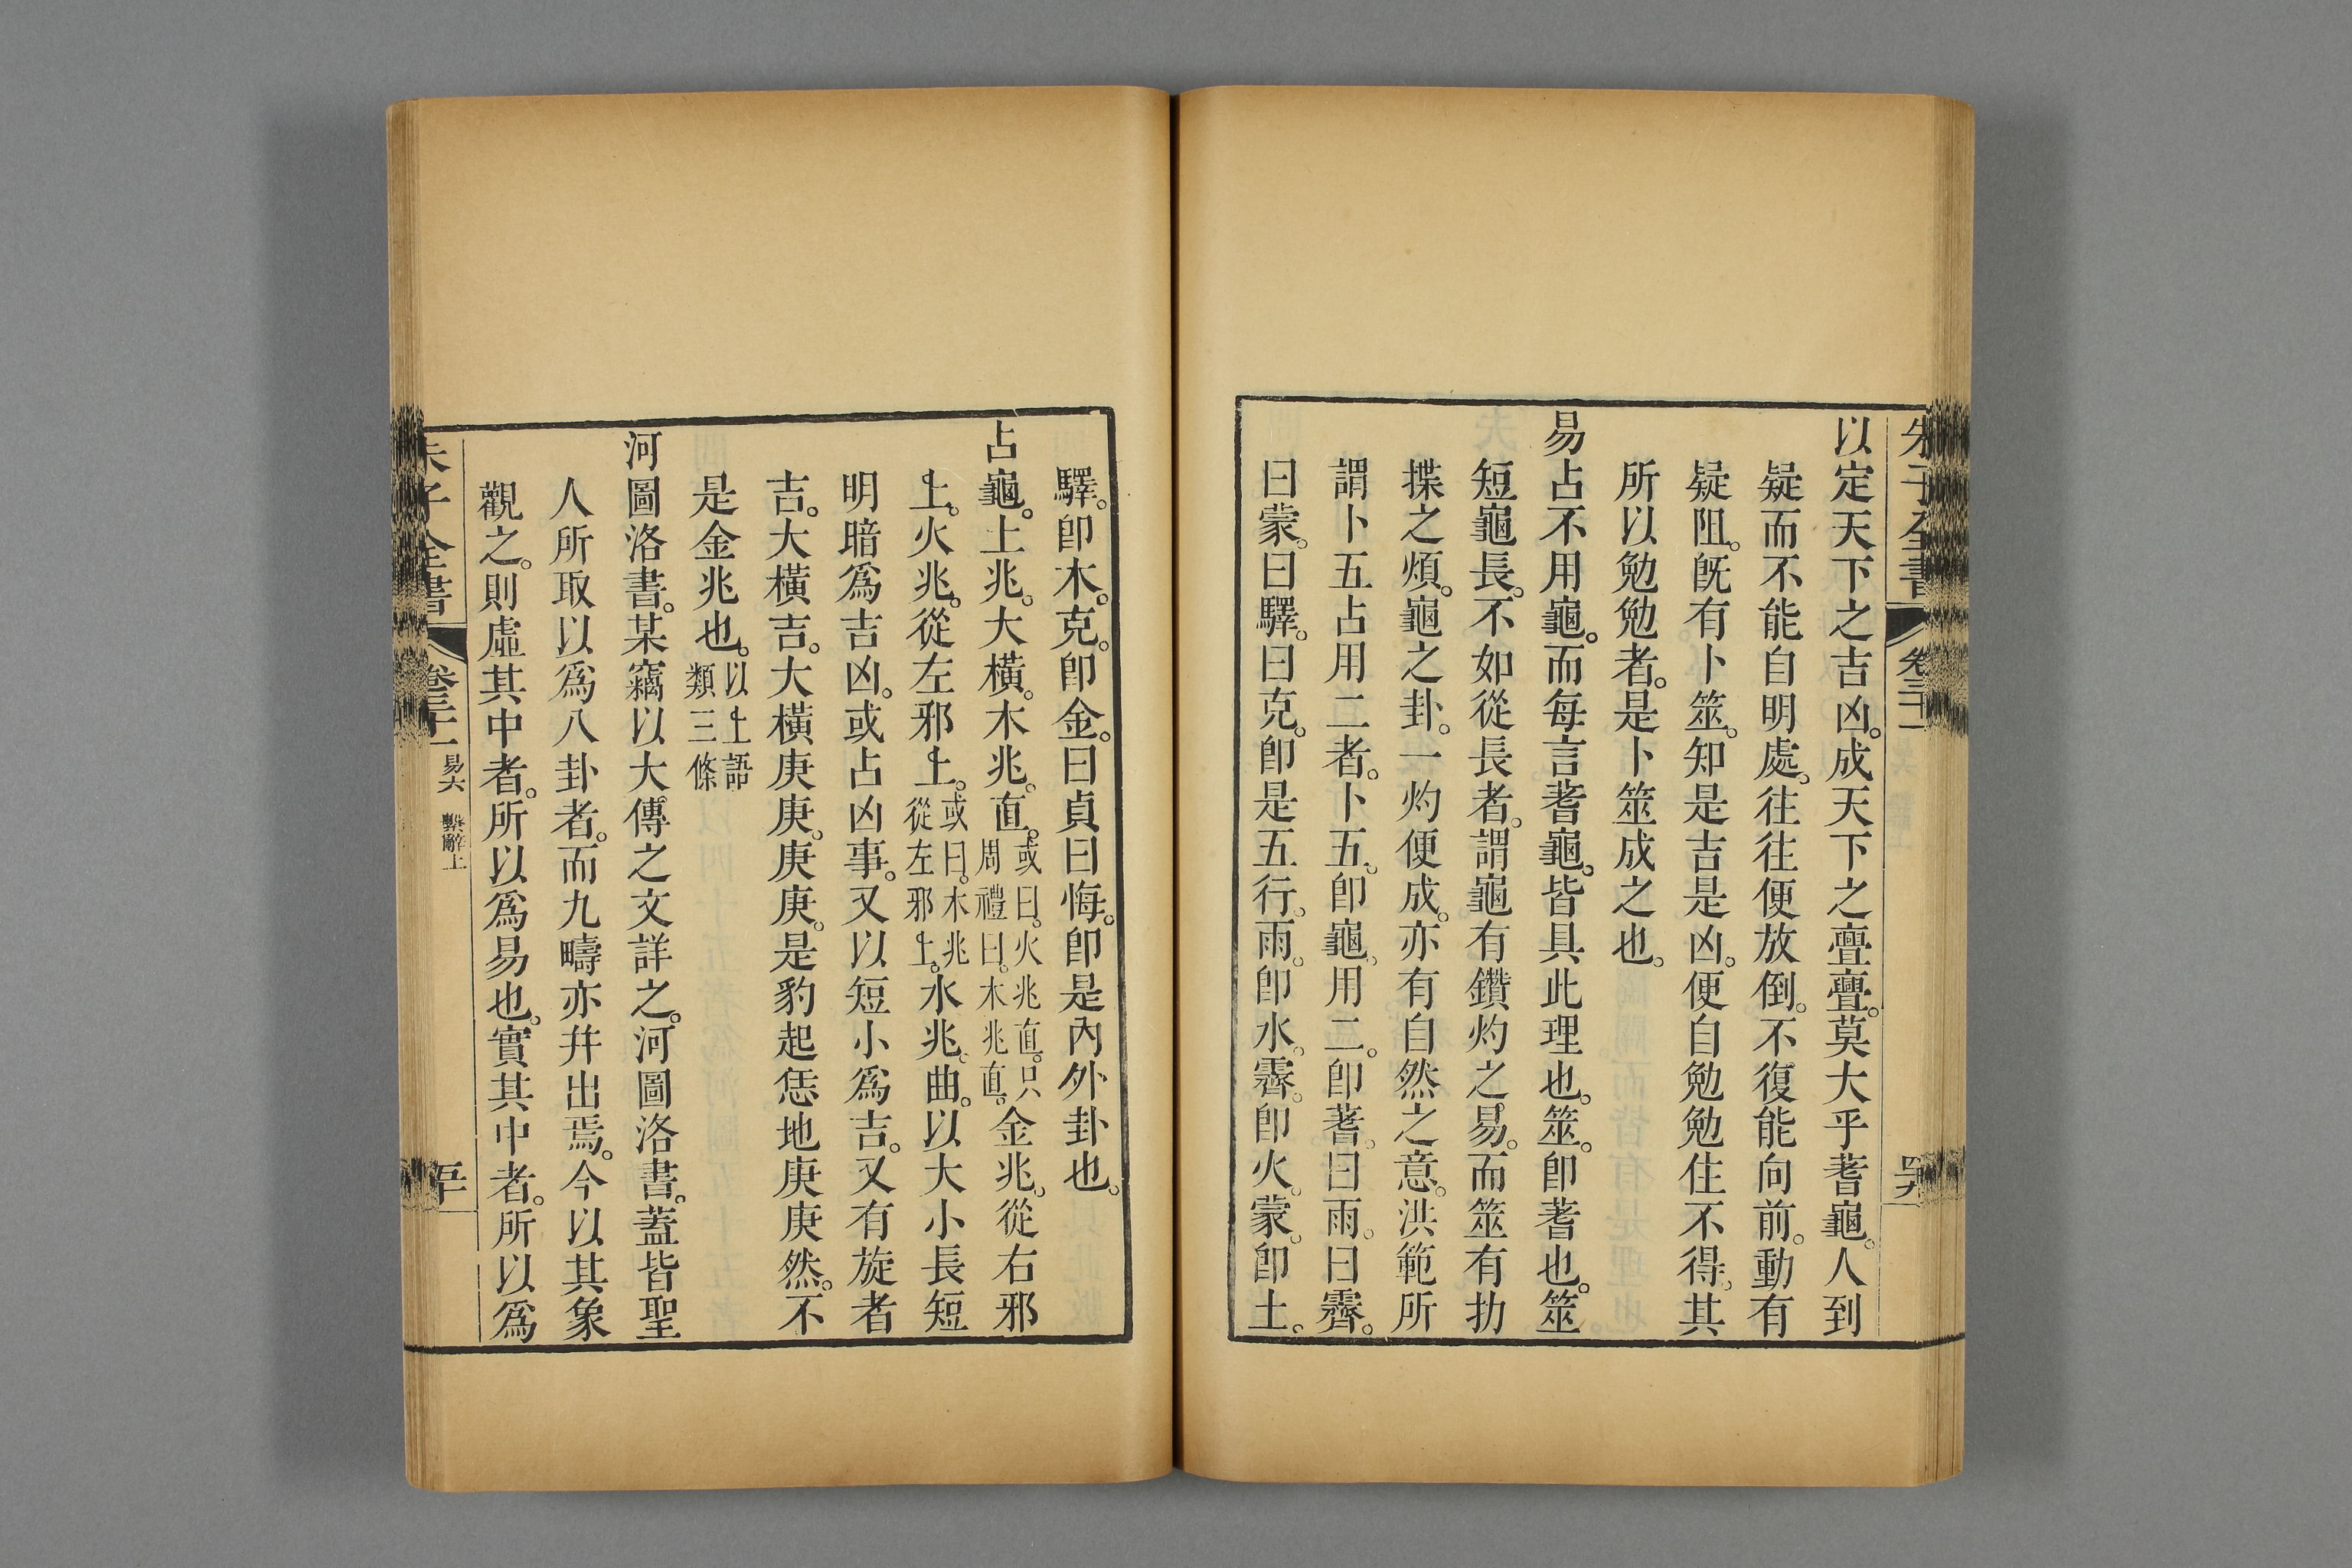 以定天下之吉凶。成天下之亹亹。莫大乎蓍龜。人到
疑而不能自明處。往往便放倒。不復能向前。動有
疑阻。旣有卜筮。知是吉是凶。便自勉勉住不得。其
所以勉勉者。是卜筮成之也。
易占不用龜。而每言蓍龜。皆具此理也。筮。卽蓍也。筮
短龜長。不如從長者。謂龜有鑽灼之易。而筮有扐
揲之煩。龜之卦。一灼便成。亦有自然之意。洪範所
謂卜五占用二者。卜五。卽龜。用二。卽蓍。曰雨。曰霽。
曰蒙。曰驛。曰克。卽是五行。雨。卽水。霽。卽火。蒙。卽土。
驛。卽木。克。卽金。曰貞曰悔。卽是內外卦也。
占龜。土兆。大橫。木兆。直。或曰。火兆直。只周禮曰。木兆直。金兆。從右邪
上。火兆。從左邪上。或曰。木兆從左邪上。水兆。曲。以大小長短
明暗爲吉凶。或占凶事。又以短小爲吉。又有旋者
吉。大橫吉。大橫庚庚。庚庚。是豹起恁地庚庚然。不
是金兆也。以上語類三條
河圖洛書。某竊以大傳之文詳之。河圖洛書。蓋皆聖
人所取以爲八卦者。而九疇亦幷出焉。今以其象
觀之。則虛其中者。所以爲易也。實其中者。所以爲
朱子全書
卷三十一
易六
繫辭上